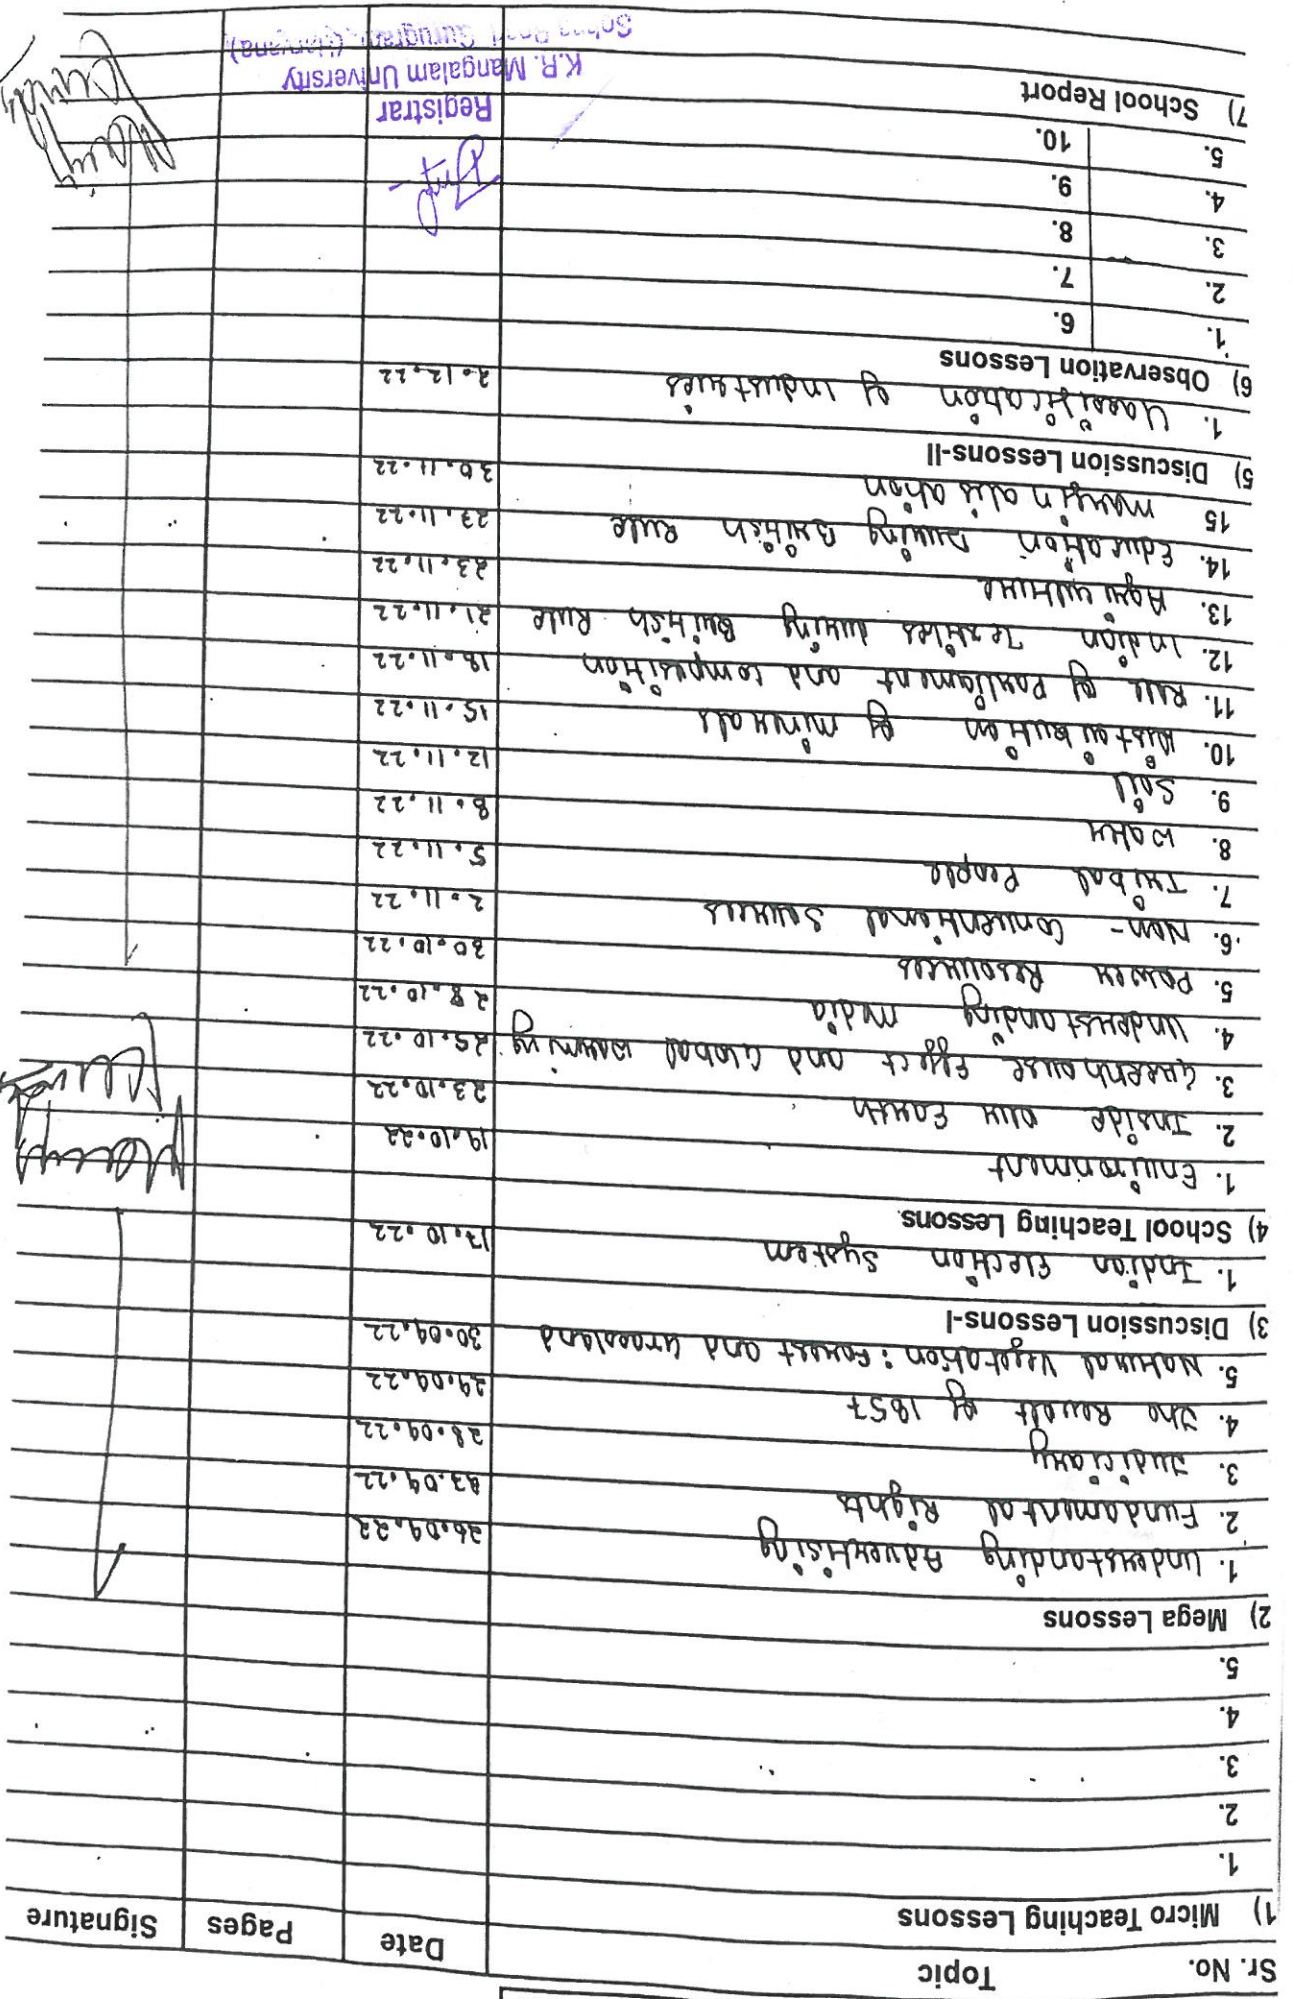 Sr. No. Topic Date Pages Signature
1) Micro Teaching Lessons
1.
2.
3.
4.
5.
2) Mega Lessons
1. Understanding Advertising 26.09.22
2. Fundamental Rights 27.09.22
3. Judiciary 28.09.22
4. The Revolt of 1857 29.09.22
5. Natural Vegetation: Forest and Grassland 30.09.22
3) Discussion Lessons-I
1. Indian Election System 17.10.22
4) School Teaching Lessons
1. Environment 19.10.22
2. Inside our Earth 23.10.22
3. Greenhouse Effect and Global warming 25.10.22
4. Understanding media 28.10.22
5. Power Resources 30.10.22
6. Non-Conventional Sources 2.11.22
7. Tribal People 5.11.22
8. Water 8.11.22
9. Soil 12.11.22
10. Distribution of minerals 15.11.22
11. Role of Parliament and composition 18.11.22
12. Indian Textiles during British Rule 21.11.22
13. Agriculture 23.11.22
14. Education During British Rule 23.11.22
15 marginalisation 30.11.22
5) Discussion Lessons-II
1. Classification of Industries 2.12.22
6) Observation Lessons
1. 6.
2. 7.
3. 8.
4. 9.
5. 10.
7) School Report
Registrar
K.R. Mangalam University
Sohna Road, Gurugram, (Haryana)